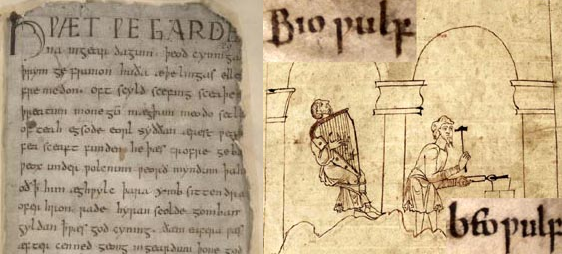 HǷÆT ǷE GARDE
na ingear dagum. þeod cyninga
þrym ge frunon huða æþelingas elle
fremedon. oft scyld scefing sceaþe
þreatum monegū mægþum meodo setla
of teah egsode eorl syððan ærest ƿear
fea sceaft funden he þæs frofre geba
ƿeox under ƿolcnum ƿeorð myndum þah
oð þ him æghƿylc þara ymb sittendra
ofer hron rade hyran scolde gomban
gyldan þæt ƿæs god cyning. ðæm eafera ƿæs
æfter cenned geong ingeardum þone god
Bio ƿulf
beo ƿulf